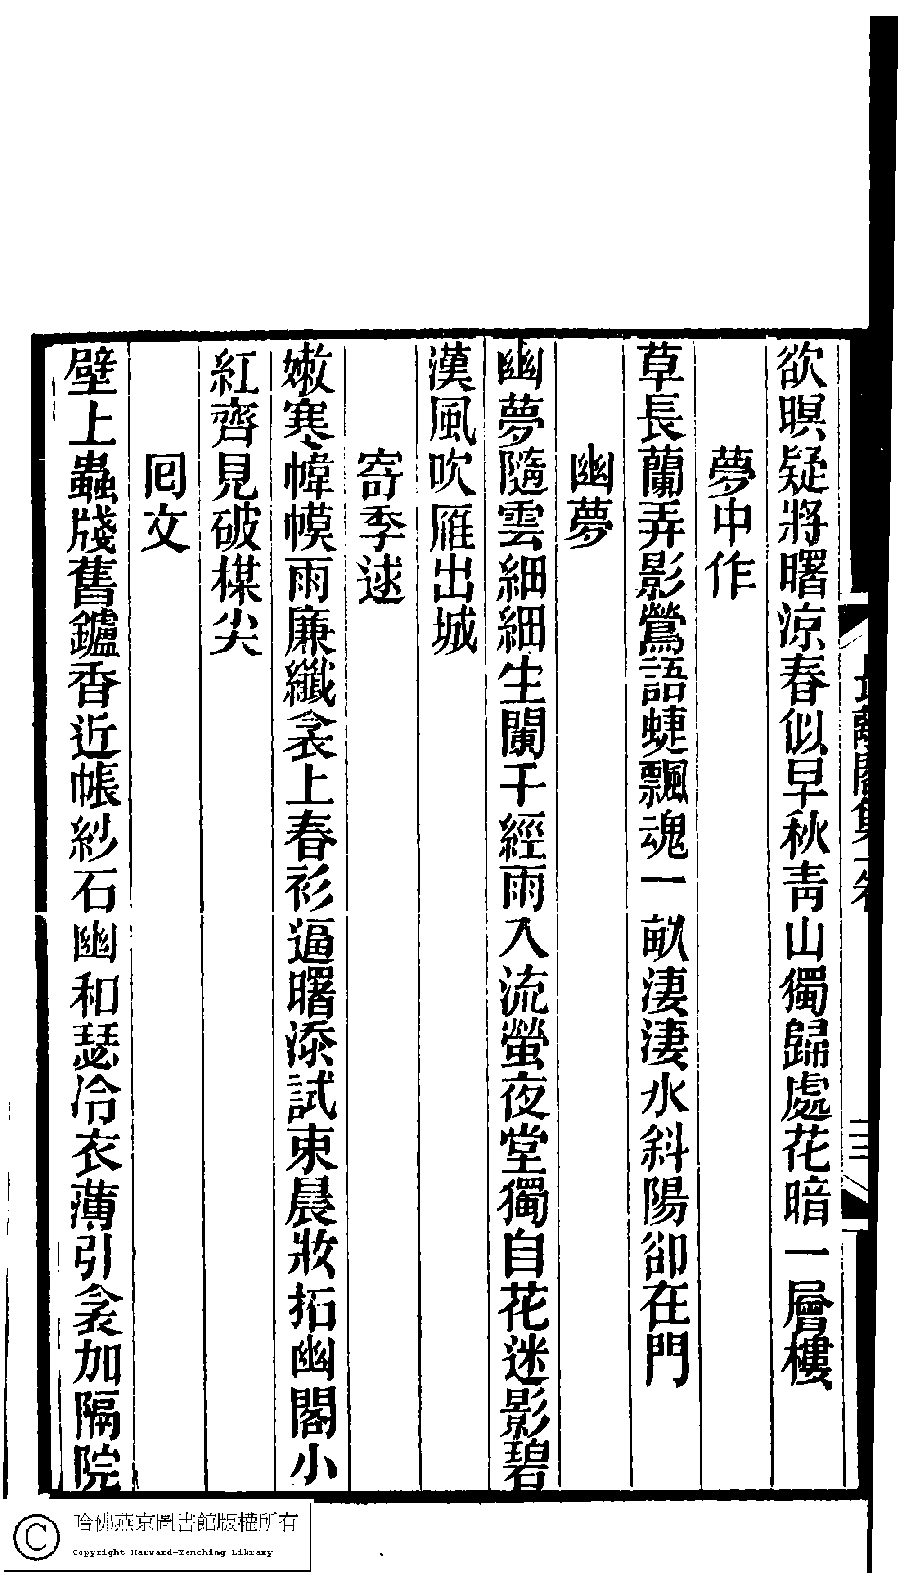 欲暝疑將曙涼春似早秋青山獨歸處花暗一層樓
夢中作
草長蘭弄影鶯語蜨飄魂一畝淒淒水斜陽卻在門
幽夢
幽夢隨雲細細生闌干經雨入流螢夜堂獨自花迷影碧
漢風吹雁出城
寄季逑
嫩寒幃幙雨廉纖衾上春衫逼曙添試東晨妝拓幽閣小
紅齊見破楳尖
囘文
壁上蟲牋舊鑪香近帳紗石幽和瑟冷衣薄引衾加隔院
哈佛燕京圖書館版權所有
Copyright Harvard-Yenching Library